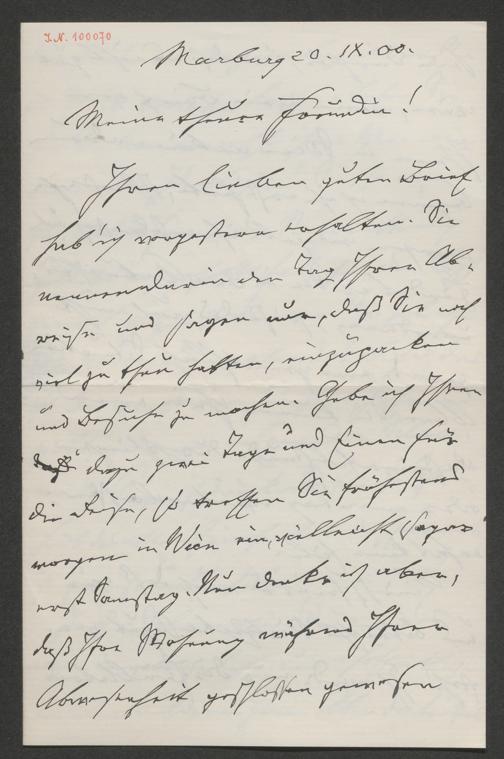 J.N. 100070
Marburg 20. IX. 00.
Meine theure Freundin!
Ihren lieben guten Brief
hab' ich vorgestern erhalten. Sie
nennen darin den Tag Ihrer Ab-
reise und sagen nur, daß Sie noch
viel zu thun hatten, einzupacken
und Besuche zu machen. Gebe ich Ihnen
dazu zwei Tage und Einen für
die Reise, so treffen Sie frühestens
morgen in Wien ein, vielleicht sogar
erst Samstag. Nun denke ich aber,
daß Ihre Wohnung während Ihrer
Abwesenheit geschlossen gewesen